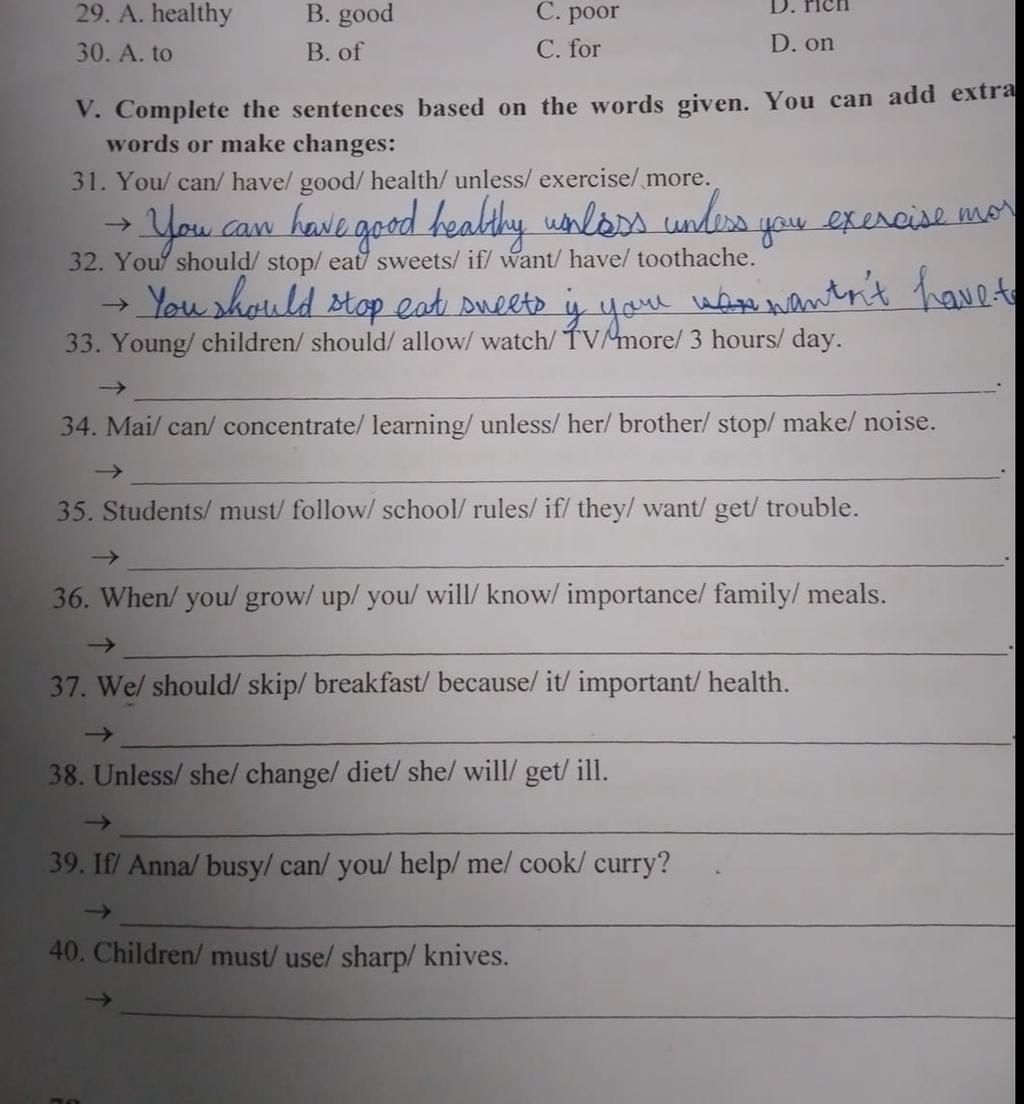 29. A. healthy B. good C. poor D. rich
30. A. to B. of C. for D. on
V. Complete the sentences based on the words given. You can add extra
words or make changes:
31. You/ can/ have/ good/ health/ unless/ exercise/ more.
→ You can have good healthy unless unless you exercise mor
32. You/ should/ stop/ eat/ sweets/ if/ want/ have/ toothache.
→ You should stop eat sweets if you wan wantn't have t
33. Young/ children/ should/ allow/ watch/ TV/ more/ 3 hours/ day.
→ .
34. Mai/ can/ concentrate/ learning/ unless/ her/ brother/ stop/ make/ noise.
→ .
35. Students/ must/ follow/ school/ rules/ if/ they/ want/ get/ trouble.
→ .
36. When/ you/ grow/ up/ you/ will/ know/ importance/ family/ meals.
→ .
37. We/ should/ skip/ breakfast/ because/ it/ important/ health.
→ .
38. Unless/ she/ change/ diet/ she/ will/ get/ ill.
→
39. If/ Anna/ busy/ can/ you/ help/ me/ cook/ curry?
→
40. Children/ must/ use/ sharp/ knives.
→